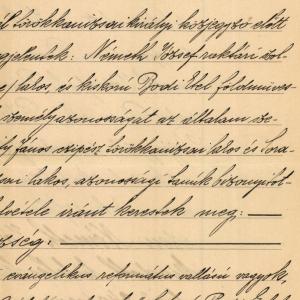 Törökkanizsai királyi közjegyző előtt
megjelentek: Németh József raktári szol-
lakos, és kiskorú Bodi Etel földmüves-
személyazonosságát az általam sze-
János czipész Törökkanizsai lakos és Tora-
lakos, azonossági tanúk bizonyitot-
felvétele iránt kerestek meg:
evangelikus református vallású vagyok,